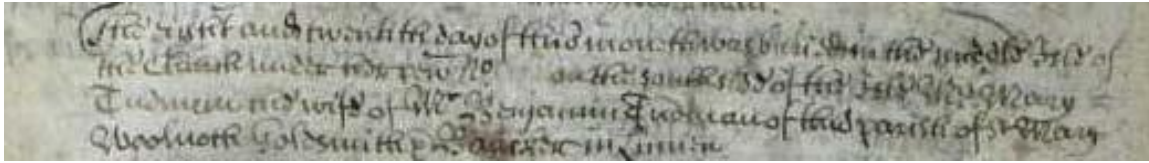 The eight and twentith day of this moneth was buried in the middle Isle of
the Church under the pew No on the south side of the Isle Mrs Mary
Tudman the wife of Mr Benjamin Tudman of this parish of St Mary
Woolnoth Goldsmith &